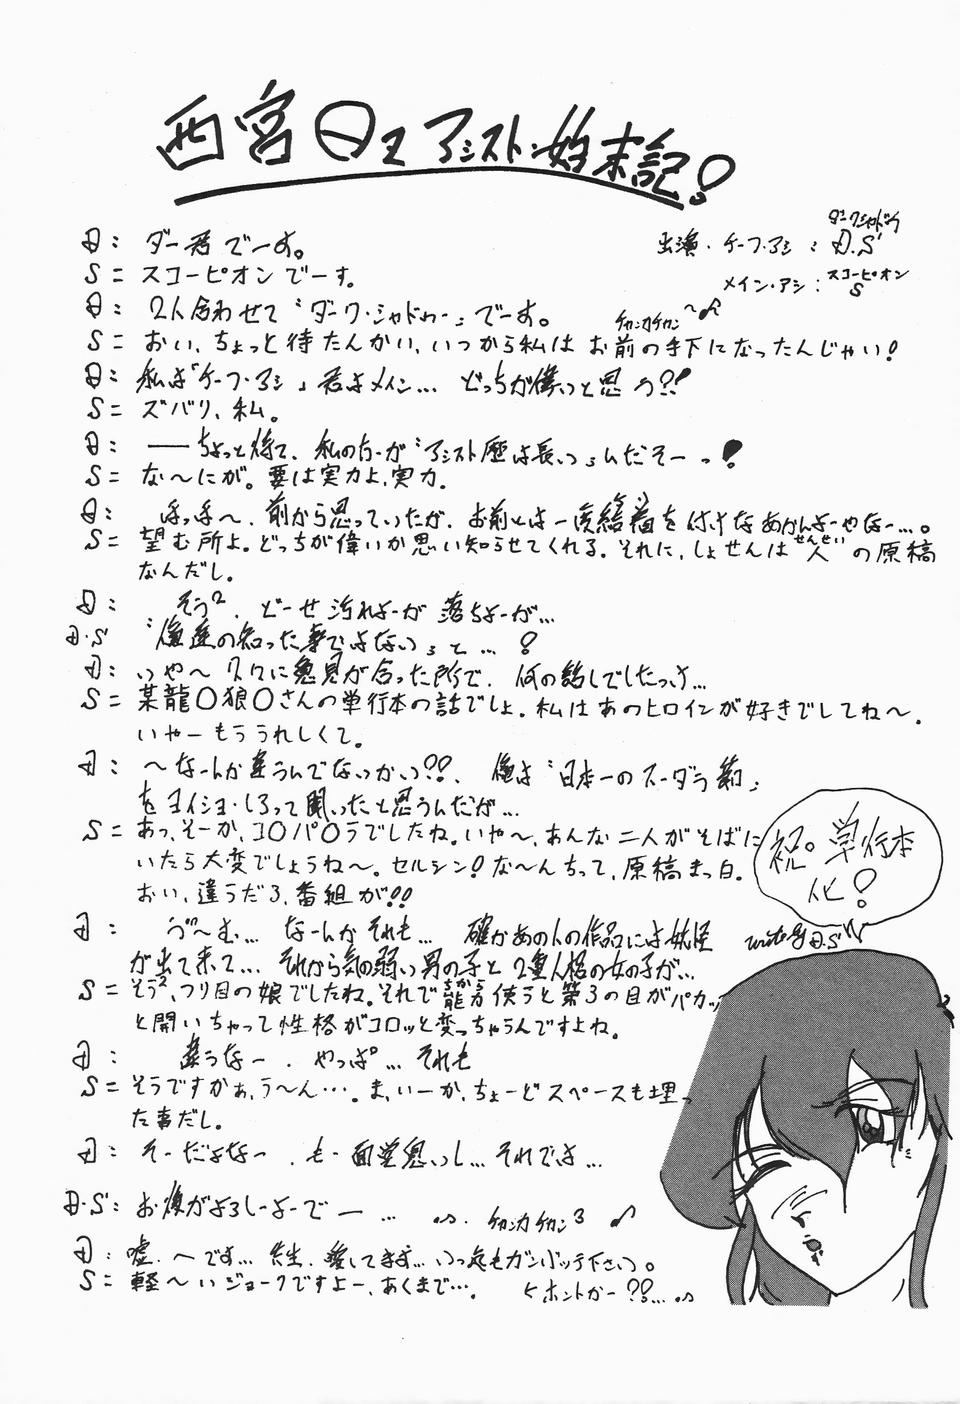 西宮 アシスト始末記！
出演・チーフ・アシ：D.S ダークシャドウ
メイン・アシ：S スコーピオン
D： ダー君でーす。
S＝スコーピオンでーす。
D： 2人合わせて〝ダーク・シャドゥー〟でーす。 チャンカチャン〜♪
S＝おい、ちょっと待たんかい、いつから私はお前の手下になったんじゃい！
D：私は「チーフ・アシ」君はメイン… どっちが偉いっと思う？？！
S＝ズバリ、私。
D： ――ちょっと待て、私のほーが〝アシスト歴は長い〟んだぞーっ！
S＝な〜にが。要は実力よ、実力。
D： ほっほ〜、前から思っていたが、お前とは一度結着を付けなあかんよーやなー…。
S＝望む所よ。どっちが偉いか思い知らせてくれる。それに、しょせんは人（せんせい）の原稿
なんだし。
D： そう²、どーせ汚れよーが 落ちよーが…
D・S 〝俺達の知った事ではない〟と…！
D：いや〜 久々に意見が合った所で、何の話しでしたっけ…
S＝某龍〇狼〇さんの単行本の話でしょ。私はあのヒロインが好きでしてね〜。
いやーもううれしくて。
D： 〜なーんか違うんでないかい？？、俺は〝日本一のスーダラ節〟
をヨイショ・しろって聞いったと思うんだが…
S＝あっ、そーか、コ〇パ〇ラでしたね。いや〜、あんな二人がそばに
いたら大変でしょうね〜。セルシン！な〜んちって、原稿まっ白。
おい、違うだろ、番組が！！
D： う〜む… なーんか それも… 確かあの人の作品には妖怪
が出て来て… それから気の弱い男の子と2重人格の女の子が…
S＝そう²、つり目の娘でしたね。それで龍力（ちから）使うと第3の目がパカッ
と開いちゃって性格がコロッと変っちゃうんですよね。
D： 違うなー、やっぱ…それも
S＝そうですかぁ、う〜ん…。ま、いーか、ちょーどスペースも埋っ
た事だし。
D： そーだよなー、も-面堂臭いし…それでは…
D・S：お後がよろしーよーでー… チャンカチャン³ ♪
D：嘘〜です… 先生、愛してます… いつ迄もガンバッテ下さい。
S＝軽〜いジョークですよー、あくまで…。 ホントかー？？…
祝。単行本
化！
write by D.S